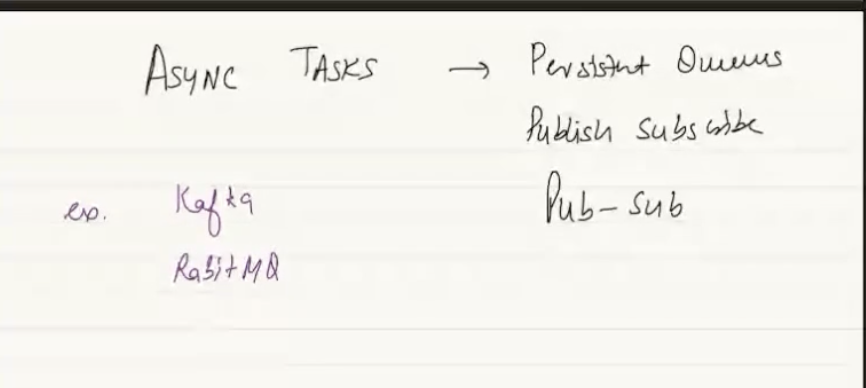 ASYNC TASKS → Persistent Queues
Publish Subscribe
ex. Kafka
Pub-Sub
RabitMQ